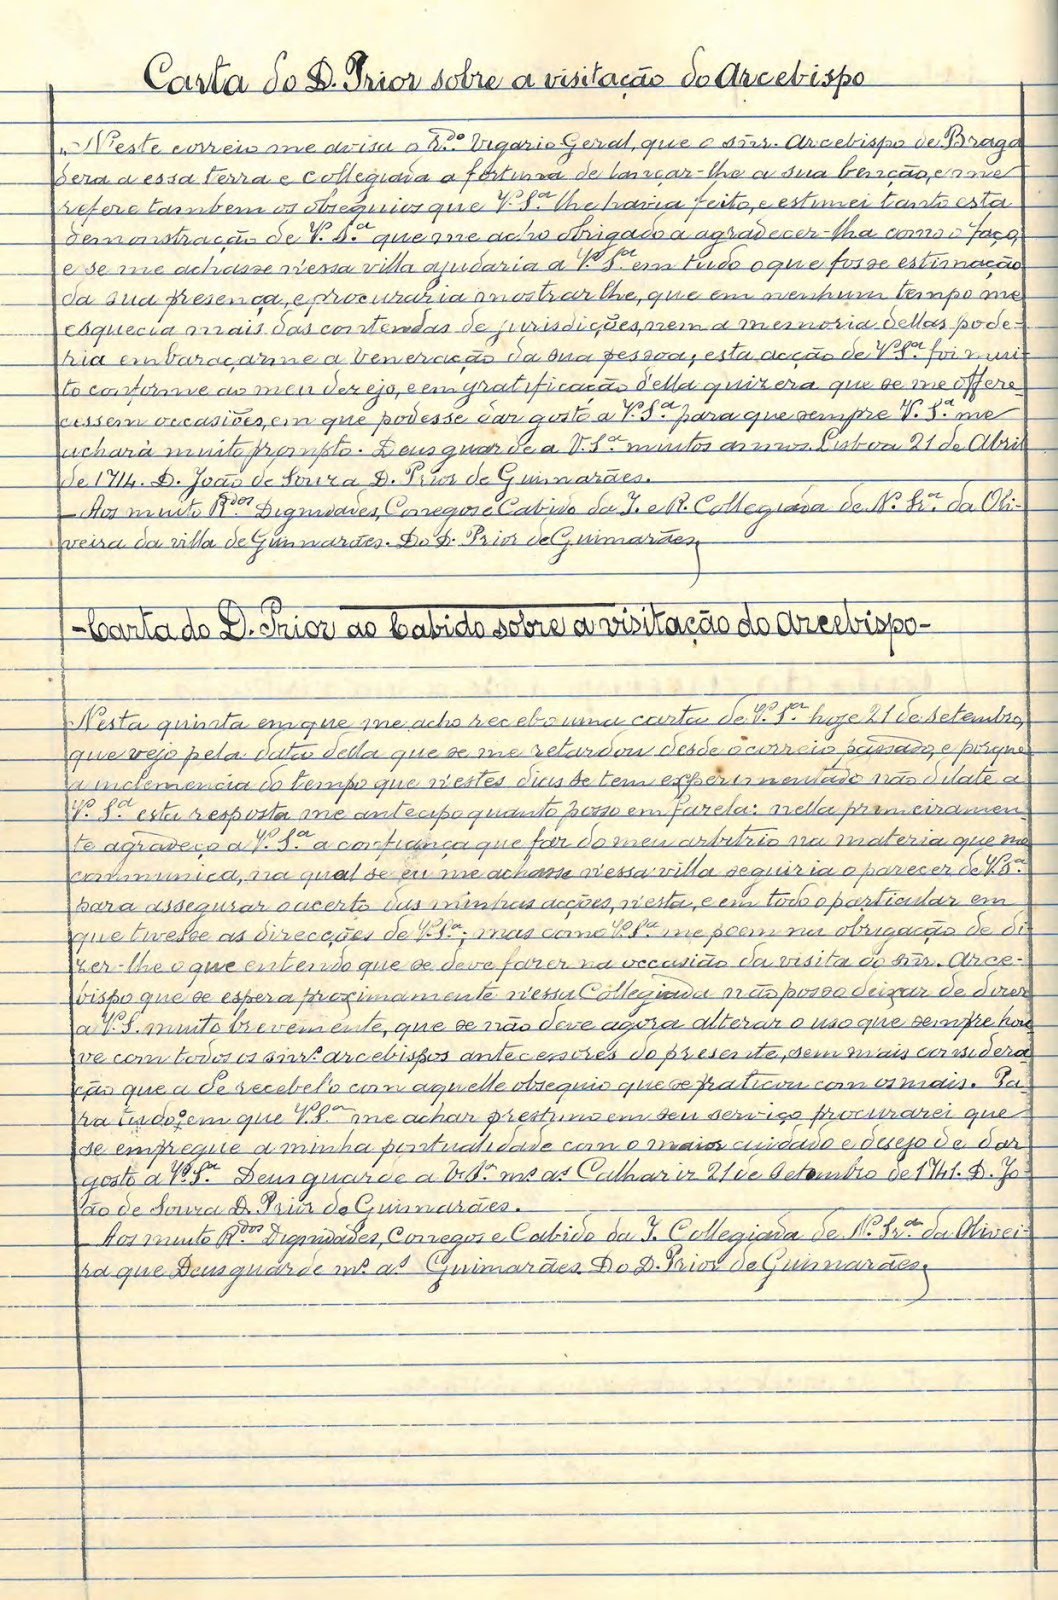 Carta do D. Prior sobre a visitação do Arcebispo
"Neste correio me avisa o R.do Vigario Geral, que o snr. Arcebispo de Braga
dera a essa terra e collegiada a fortuna de lançar-lhe a sua benção, e me
refere tambem os obsequios que V.S.ª lhe havia feito, e estimei tanto esta
demonstração de V.S.ª que me acho obrigado a agradecer-lha como o faço,
e se me achasse n'essa villa ajudaria a V.S.ª em tudo o que fosse estimação
da sua presença, e procuraria mostrarlhe, que em nenhum tempo me
esquecia mais das contendas de jurisdições, nem a memoria dellas pode-
ria embaraçarme a veneração da sua pessoa; esta acção de V.S.ª foi mui-
to conforme ao meu dezejo, e em gratificação della quizera que se me offere-
cessem occasiões, em que podesse dar gosto a V.S.ª para que sempre V.S.ª me
achará muito prompto. Deus guarde a V.S.ª muitos annos. Lisboa 21 de Abril
de 1714. D. João de Souza D. Prior de Guimarães.
Aos muito R.dos Dignidades, Conegos e Cabido da I. e R. Collegiada de N. Sr.ª da Oli-
veira da villa de Guimarães. Do D. Prior de Guimarães
-Carta do D. Prior ao Cabido sobre a visitação do Arcebispo-
Nesta quinta em que me acho recebo uma carta de V.S.ª hoje 21 de setembro,
que vejo pela data della que se me retardou desde o correio passado, e porque
a inclemencia do tempo que n'estes dias se tem experimentado não dilate a
V.S.ª esta resposta me antecipo quanto posso em fazela: nella primeiramen-
te agradeço a V.S.ª a confiança que faz do meu arbitrio na materia que me
communica, na qual se eu me achasse n'essa villa seguiria o parecer de V.S.ª
para assegurar o acerto das minhas acções, n'esta, e em todo o particular em
que tivesse as direcções de V.S.ª; mas como V.S.ª me poem na obrigação de di-
zer-lhe o que entendo que se deve fazer na occasião da visita do snr. Arce-
bispo que se espera proximamente n'essa Collegiada não posso deixar de dizer
a V.S. muito brevemente, que se não deve agora alterar o uso que sempre hou-
ve com todos os snrs. arcebispos antecessores do presente, sem mais considera-
ção que a de recebel'o com aquelle obsequio que se praticou com os mais. Pa-
ra tudo, em que V.S.ª me achar prestimo em seu serviço procurarei que
se empregue a minha pontualidade com o maior cuidado e dezejo de dar
gosto a V.S.ª Deus guarde a V.S.ª m.s a.s Calhariz 21 de Setembro de 1741. D. Jo-
ão de Souza D. Prior de Guimarães.
Aos muito R.dos Dignidades, Conegos e Cabido da I. Collegiada de N. Sr.ª da Olivei-
ra que Deus guarde m.s a.s Guimarães. Do D. Prior de Guimarães